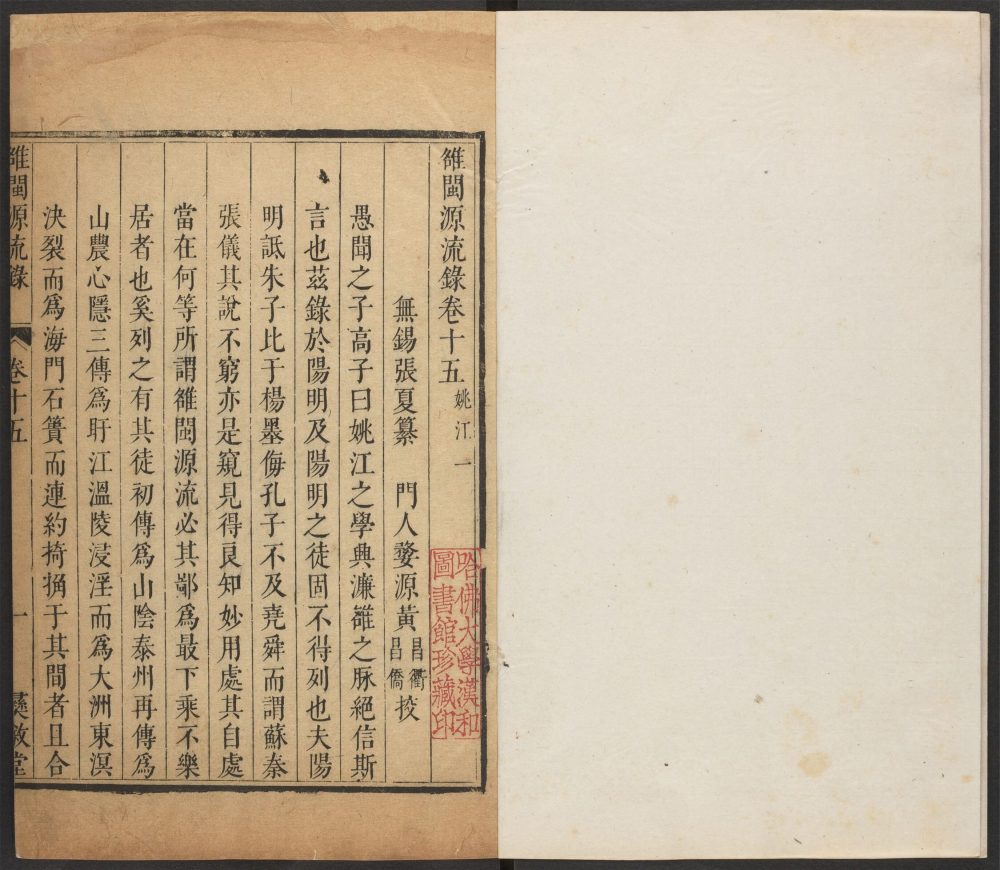 雒閩源流錄卷十五 姚江一
無錫張夏纂 門人婺源黃昌衢昌僑挍
愚聞之子高子曰姚江之學典濂雒之脉絕信斯
言也茲錄於陽明及陽明之徒固不得列也夫陽
明詆朱子比于楊墨侮孔子不及堯舜而謂蘇秦
張儀其說不窮亦是窺見得良知妙用處其自處
當在何等所謂雒閩源流必其鄙為最下乘不樂
居者也奚列之有其徒初傳爲山陰泰州再傳爲
山農心隱三傳爲盱江溫陵浸淫而爲大洲東溟
決裂而爲海門石簣而連約掎捔于其間者且合
雒閩源流錄 卷十五 一 彞敘堂
哈佛大學漢和
圖書館珍藏印